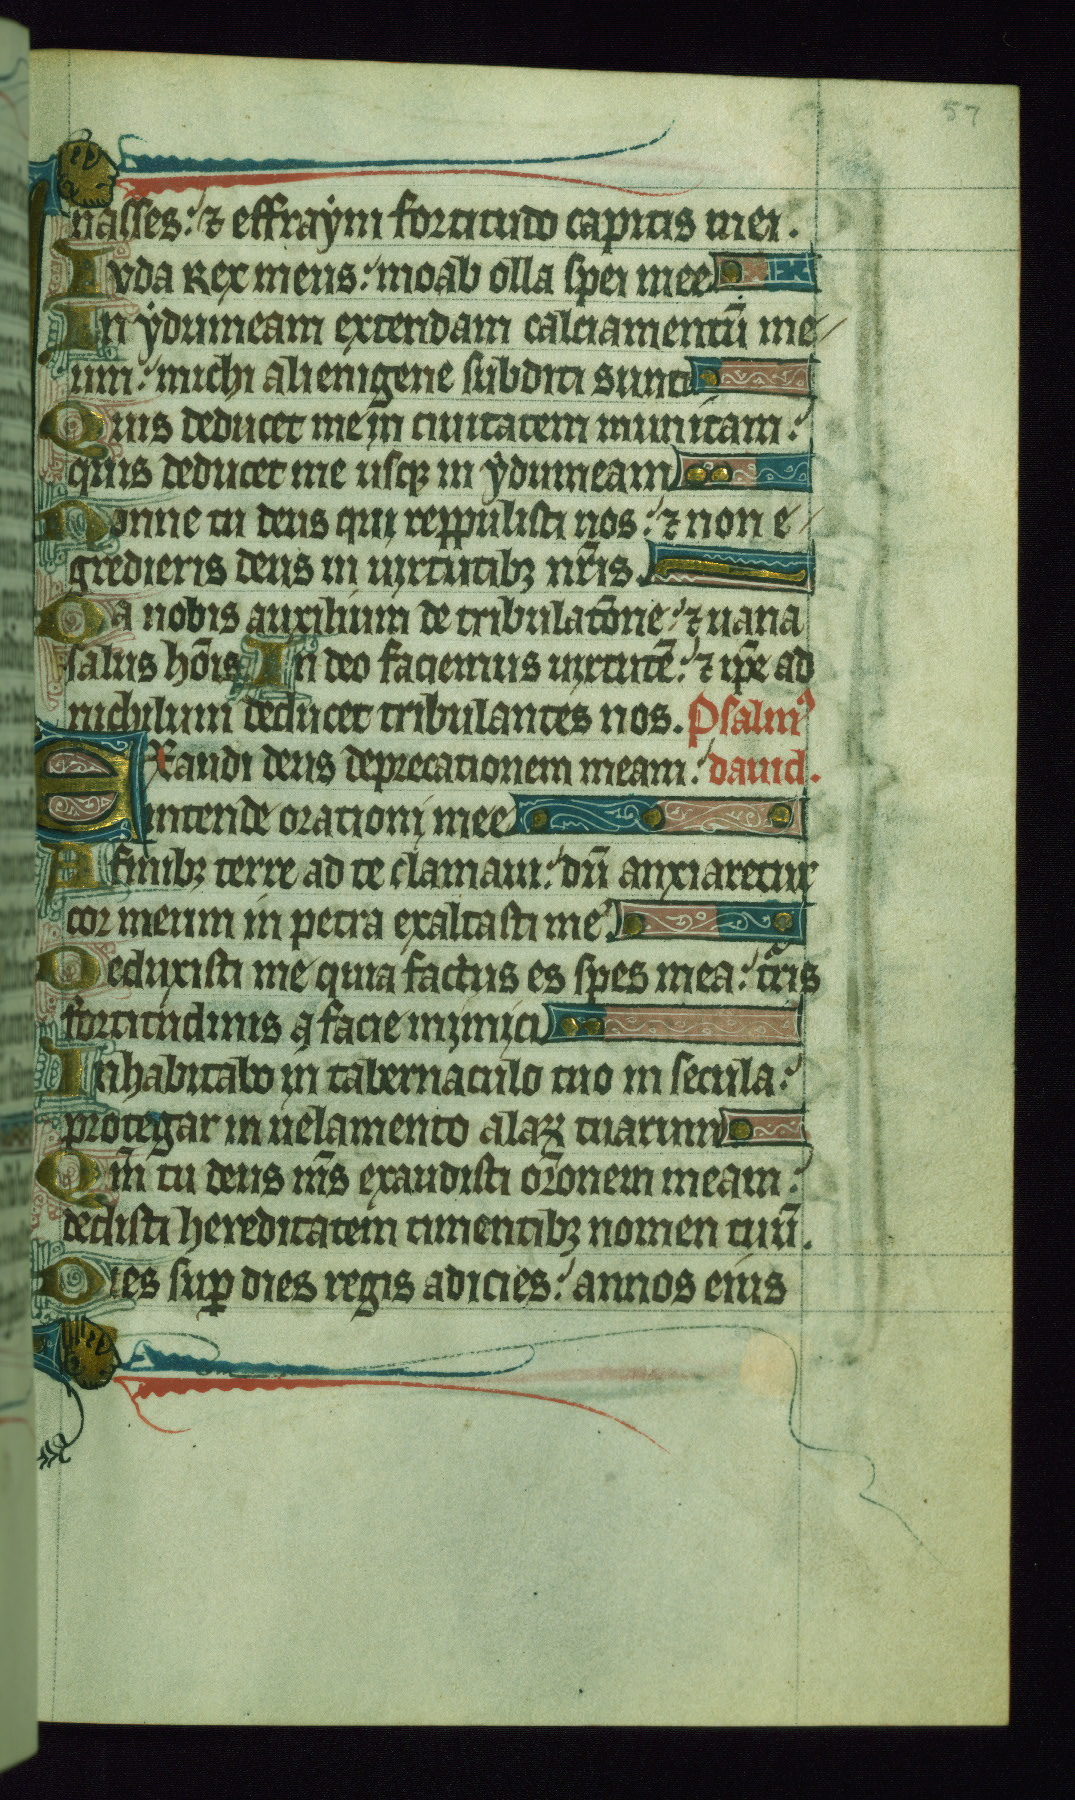 57
nasses: ⁊ effraym fortitudo capitis mei.
Iuda Rex meus: moab olla spei mee
In ydumeam extendam calciamentū me
um: michi alienigene subditi sunt
Quis deducet me in ciuitatem munitam:
quis deducet me usqꝫ in ydumeam
Nonne tu deus qui reppulisti nos: ⁊ non e
gredieris deus in uirtutibꝫ nr̄is.
Da nobis auxilium de tribulatōne: ⁊ uana
salus hōis In deo faciemus uirtutē: ⁊ ip̄e ad
nichilum deducet tribulantes nos. Psalmꝰ
Exaudi deus deprecationem meam: dauid.
intende orationi mee
A finibꝫ terre ad te clamaui: dū anxiaretur
cor meum in petra exaltasti me
Deduxisti me quia factus es spes mea: tͬris
fortitudinis a facie inimici
Inhabitabo in tabernaculo tuo in secula:
protegar in uelamento alaꝝ tuarum
Qm̄ tu deus m̄s exaudisti or̄onem meam:
dedisti hereditatem timentibꝫ nomen tuū.
Dies suꝑ dies regis adicies: annos eius